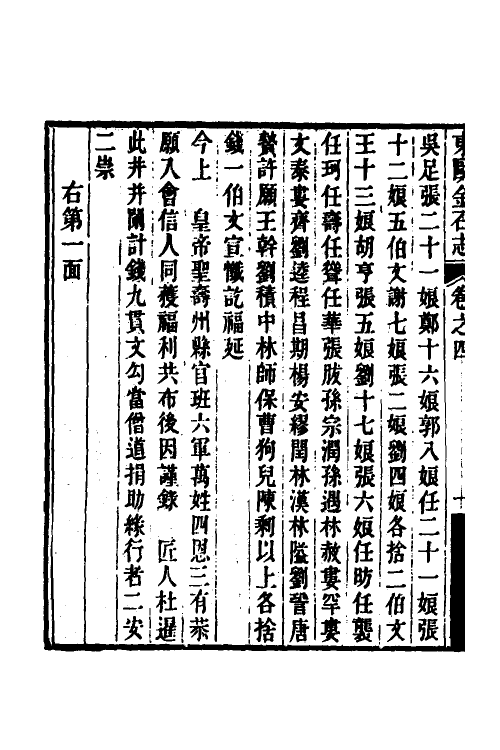 東甌金石志 卷之四 十
吳足張二十一娘鄭十六娘郭八娘任二十一娘張
十二娘五伯文謝七娘張二娘劉四娘各捨二伯文
王十三娘胡亨張五娘劉十七娘張六娘任昉任襲
任珂任壽任聳任華張肱孫宗潤孫遇林赦婁罕婁
文泰婁齊劉逵程昌期楊安繆閏林漢林隘劉晉唐
餐許願王幹劉積中林師保曹狗兒陳剩以上各捨
錢一伯文宣懺訖福延
今上　皇帝聖壽州縣官班六軍萬姓四恩三有菾
願入會信人同獲福利共布後因謹錄　匠人杜暹
此井并闌計錢九貫文勾當僧道捐助緣行者二安
二祟
右第一面